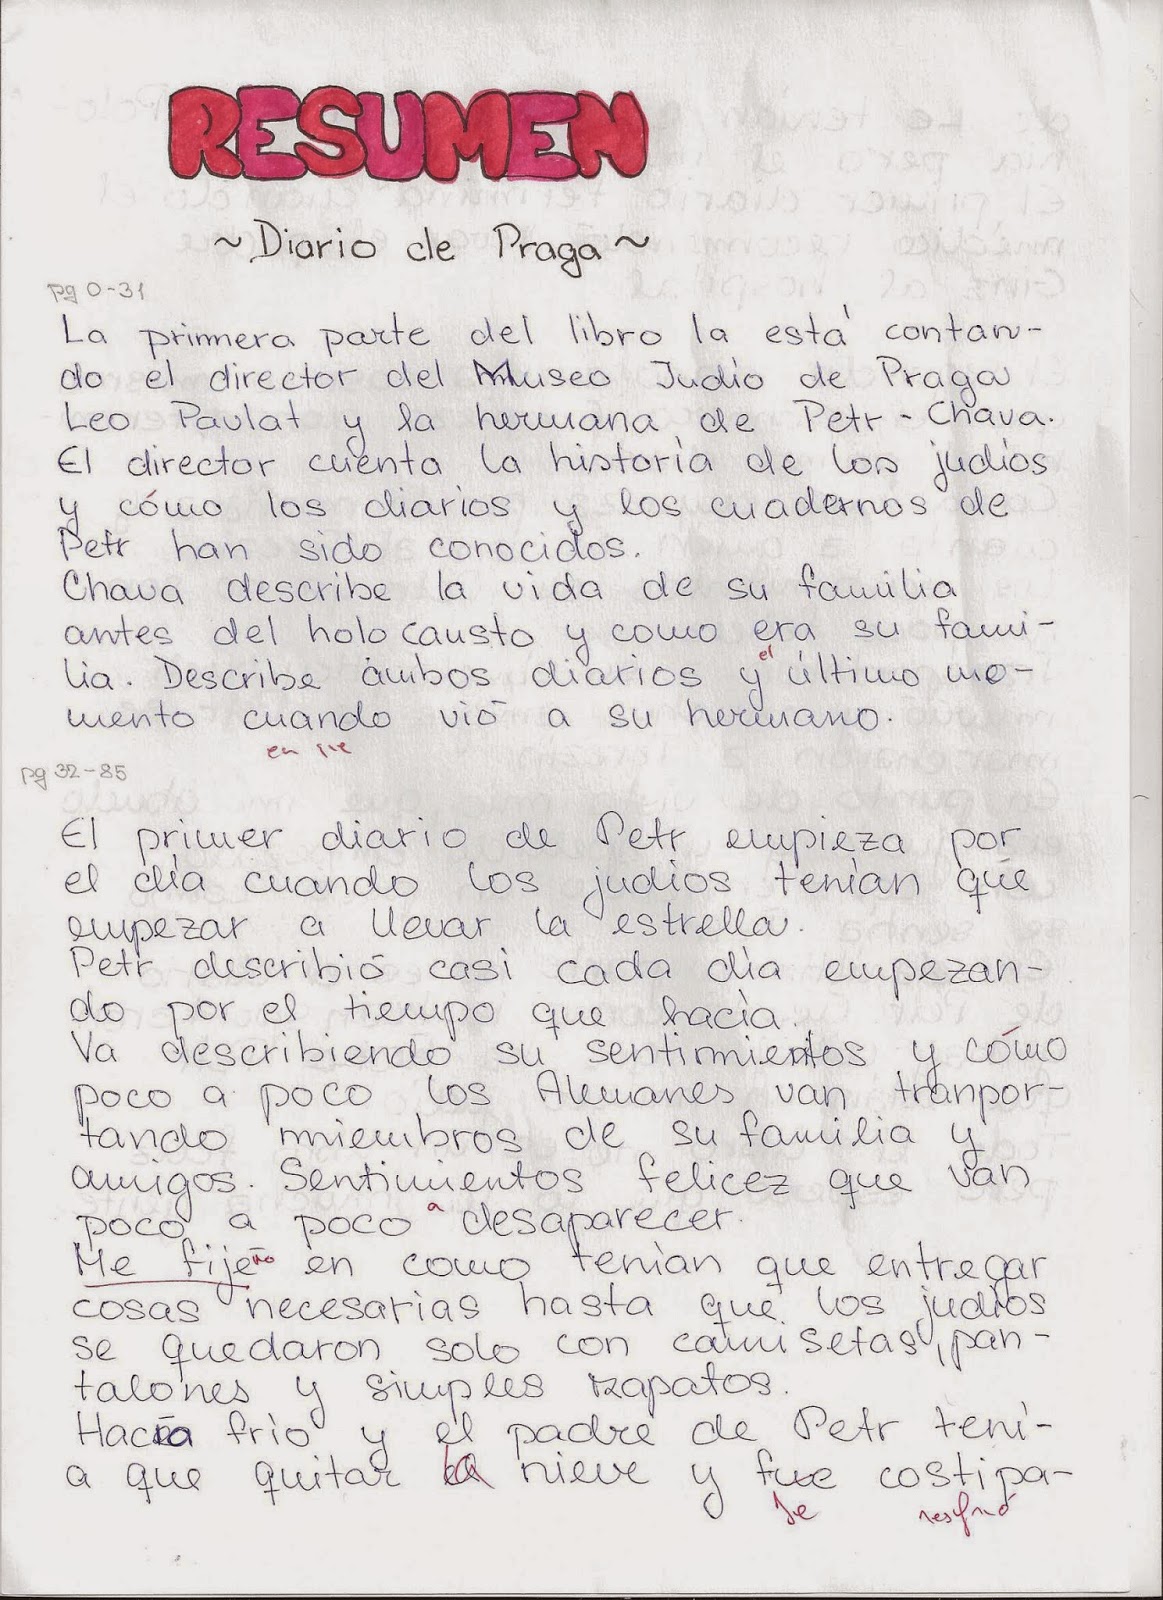 RESUMEN
~Diario de Praga~
pg 0-31
La primera parte del libro la está contan-
do el director del Museo Judio de Praga
Leo Pavlat y la hermana de Petr - Chava.
El director cuenta la historia de los judios
y cómo los diarios y los cuadernos de
Petr han sido conocidos.
Chava describe la vida de su familia
antes del holocausto y como era su fami-
el
lia. Describe ambos diarios y último mo-
mento cuando vió a su hermano.
en
pg 32-85
El primer diario de Petr empieza por
el día cuando los judios tenían que
empezar a llevar la estrella.
Petr describió casi cada día empezan-
do por el tiempo que hacía.
Va describiendo su sentimientos y cómo
poco a poco los Alemanes van tranpor-
tando miembros de su familia y
amigos. Sentimientos felicez que van
poco a poco a desaparecer.
Me fije no en como tenían que entregar
cosas necesarias hasta que los judios
se quedaron solo con camisetas, pan-
talones y simples zapatos.
Hacía frio y el padre de Petr tení-
a que quitar la nieve y fue costipa-
se resfrió